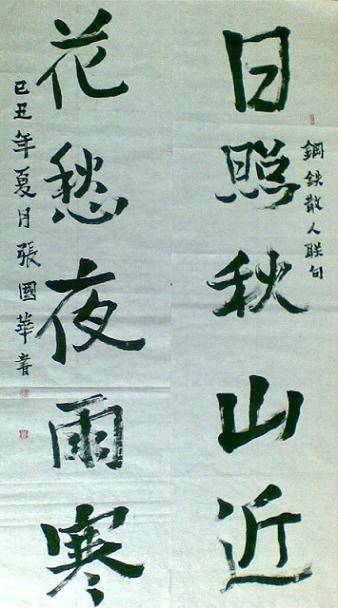 鋼鉄散人联句
日照秋山近
花愁夜雨寒
己丑年夏月張國華書